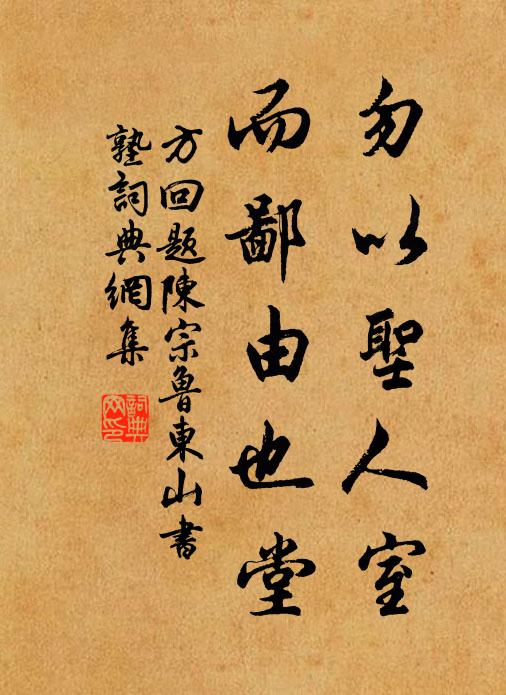 勿以聖人室
而鄙由也堂
方回題陳宗魯東山書
塾詞典網集
詞典
网印